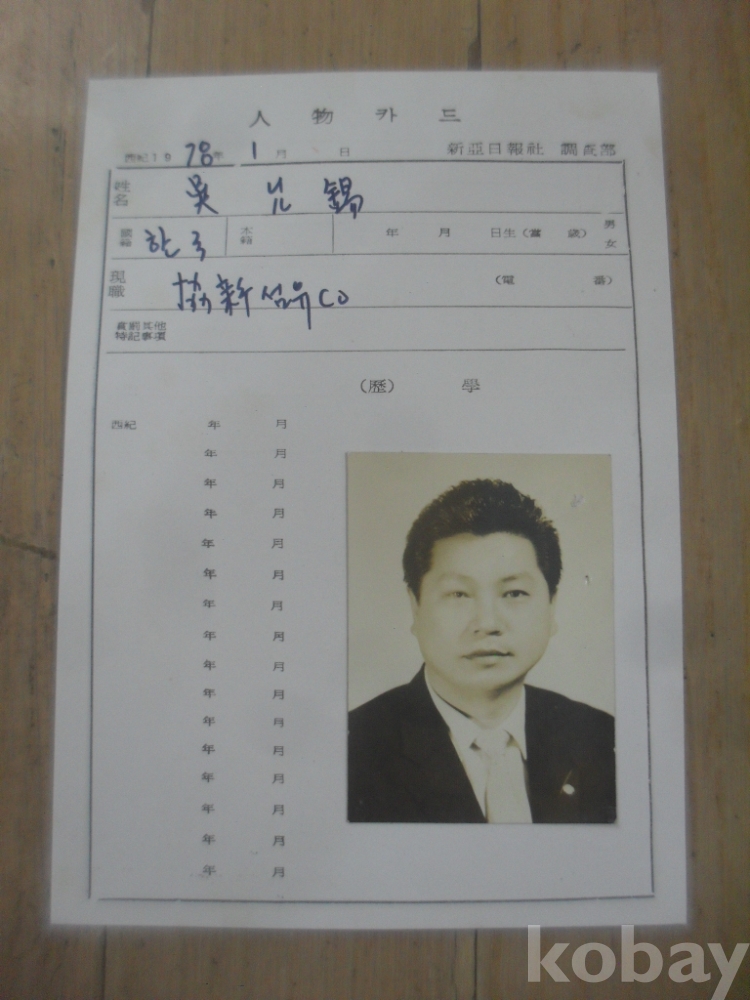 人物카드
西紀19 78年 1月 日 新亞日報社 調査部
姓名 吳 錫
國籍 한국 本籍 年 月 日生(當 歲) 男女
現職 協新섬유CO (電 番)
其他
特記事項
(歷) 學
西紀 年 月
年 月
年 月
年 月
年 月
年 月
年 月
年 月
年 月
年 月
年 月
年 月
年 月
年 月
年 月
年 月
kobay